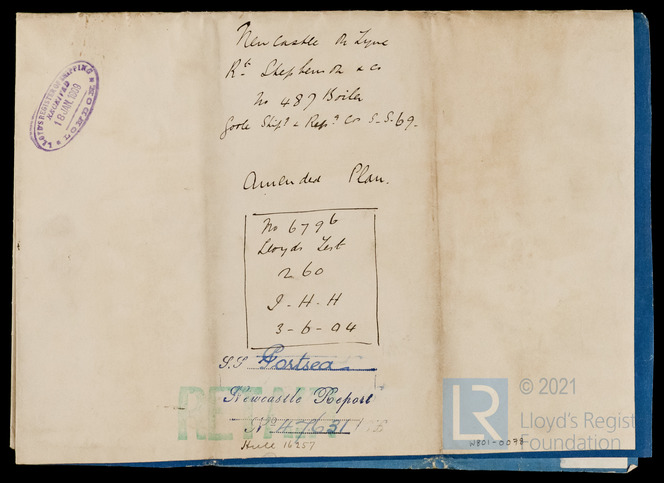 Newcastle on Tyne
Rt Stephenson & Co
No 487 Boiler
Goole Shipg & Repg Co S.S. 69.
LLOYD'S REGISTER OF SHIPPING
RECEIVED
18 JAN 1909
LONDON
Amended Plan.
No 6796
Lloyds Test
260
J-H-H
3-6-04
S.S Portsea
RETAIN
Newcastle Report
No 47631
Hull 16257
W801-0078
LR
© 2021
Lloyd's Regist
Foundation